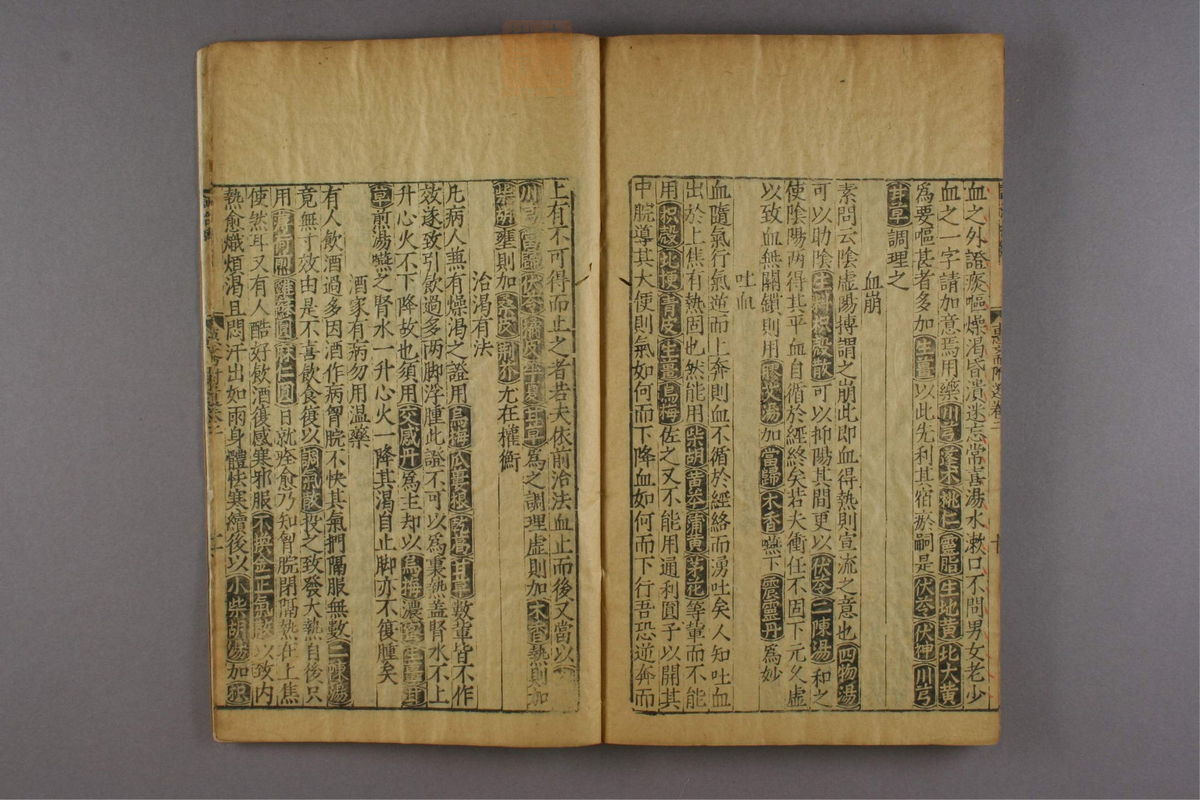 血之外證痰嘔燥渴昏潰迷忘常喜湯水漱口不問男女老少
血之一字請加意焉用藥川芎蓬朮桃仁靈脂生地黃北大黃
為要嘔甚者多加生薑以此先利其宿瘀嗣是伏苓伏神川芎
甘草調理之
血崩
素問云陰虛陽搏謂之崩此即血得熱則宣流之意也四物湯
可以助陰生料枳殼散可以抑陽其間更以伏苓二陳湯和之
使陰陽兩得其平血自循於經終矣若大衝任不固下元久虛
以致血無關鎖則用膠艾湯加當歸木香嚥下震靈丹為妙
吐血
血隨氣行氣逆而上奔則血不循於經絡而湧吐矣人知吐血
出於上焦有熱固也然能用柴胡黃芩蒲黃茅花等輩而不能
用枳殼北梗青皮生薑烏梅佐之又不能用通利圓子以開其
中脘導其大便則氣如何而下降血如何而下行吾恐逆奔而
上有不可得而止之者若夫依前治法血止而後又當以
川芎當歸伏苓橘皮半夏甘草為之調理虛則加木香熱則加
柴胡壅則加桑皮荊芥尤在權衡
治渴有法
凡病人兼有燥渴之證用烏梅瓜蔞根麥門甘草數輩皆不作
效遂致引飲過多两脚浮腫此證不可以為裏熱蓋腎水不上
升心火不下降故也須用交感丹為主却以烏梅濃蜜生薑甘
草煎湯嚥之腎水一升心火一降其渴自止脚亦不復腫矣
酒家有病勿用温藥
有人飲酒過多因酒作病胷脘不快其氣捫隔服無數二陳湯
竟無寸效由是不喜飲食復以調氣散投之致發大熱自後只
用麻仁圓日就痊愈乃知胷脘閉隔熱在上焦
使然耳又有人酷好飲酒復感寒邪服不換金正氣散以致内
熱愈熾煩渴且悶汗出如雨身體怏寒續後以小柴胡湯加枳